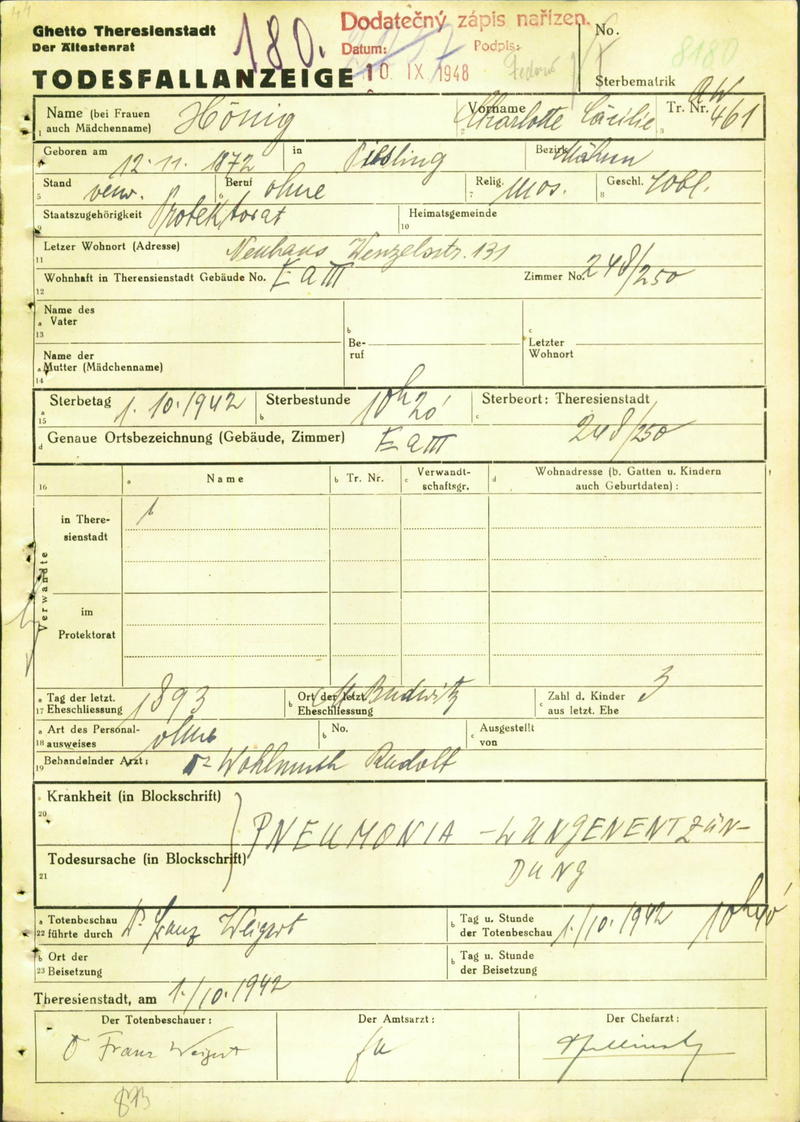 Ghetto Theresienstadt
Der Ältestenrat
TODESFALLANZEIGE
180.
Dodatečný zápis nařízen.
Datum: Podpis:
10 IX 1948
No.
8180
Sterbematrik
Name (bei Frauen auch Mädchenname) Hönig
Vorname Charlotte Cäcilie
Tr. Nr. AW 461
Geboren am 12.11.1872 in Piesling Bezirk Mähren
Stand verw. Beruf ohne Relig. mos. Geschl. weibl.
Staatszugehörigkeit Protektorat Heimatsgemeinde
Letzer Wohnort (Adresse) Neuhaus Wenzelsstr. 131
Wohnhaft in Theresienstadt Gebäude No. E a III Zimmer No. 248/250
Name des Vater
Beruf
Letzter Wohnort
Name der Mutter (Mädchenname)
Sterbetag 1.10.1942 Sterbestunde 10h 20' Sterbeort: Theresienstadt
Genaue Ortsbezeichnung (Gebäude, Zimmer) E a III 248/250
Name Tr. Nr. Verwandtschaftsgr. Wohnadresse (b. Gatten u. Kindern auch Geburtdaten):
Verwandte
in Theresienstadt
im Protektorat
Tag der letzt. Eheschliessung 1893 Ort der letzt. Eheschliessung M. Budwitz Zahl d. Kinder aus letzt. Ehe 3
Art des Personalausweises ohne No. Ausgestellt von
Behandelnder Arzt: Dr Wohlmuth Rudolf
Krankheit (in Blockschrift)
PNEUMONIA - LUNGENENTZÜN-
Todesursache (in Blockschrift)
DUNG
Totenbeschau führte durch Dr. Franz Weigert Tag u. Stunde der Totenbeschau 1./10.1942 10h40'
Ort der Beisetzung Tag u. Stunde der Beisetzung
Theresienstadt, am 1./10.1942
Der Totenbeschauer: Der Amtsarzt: Der Chefarzt:
Dr Franz Weigert
813